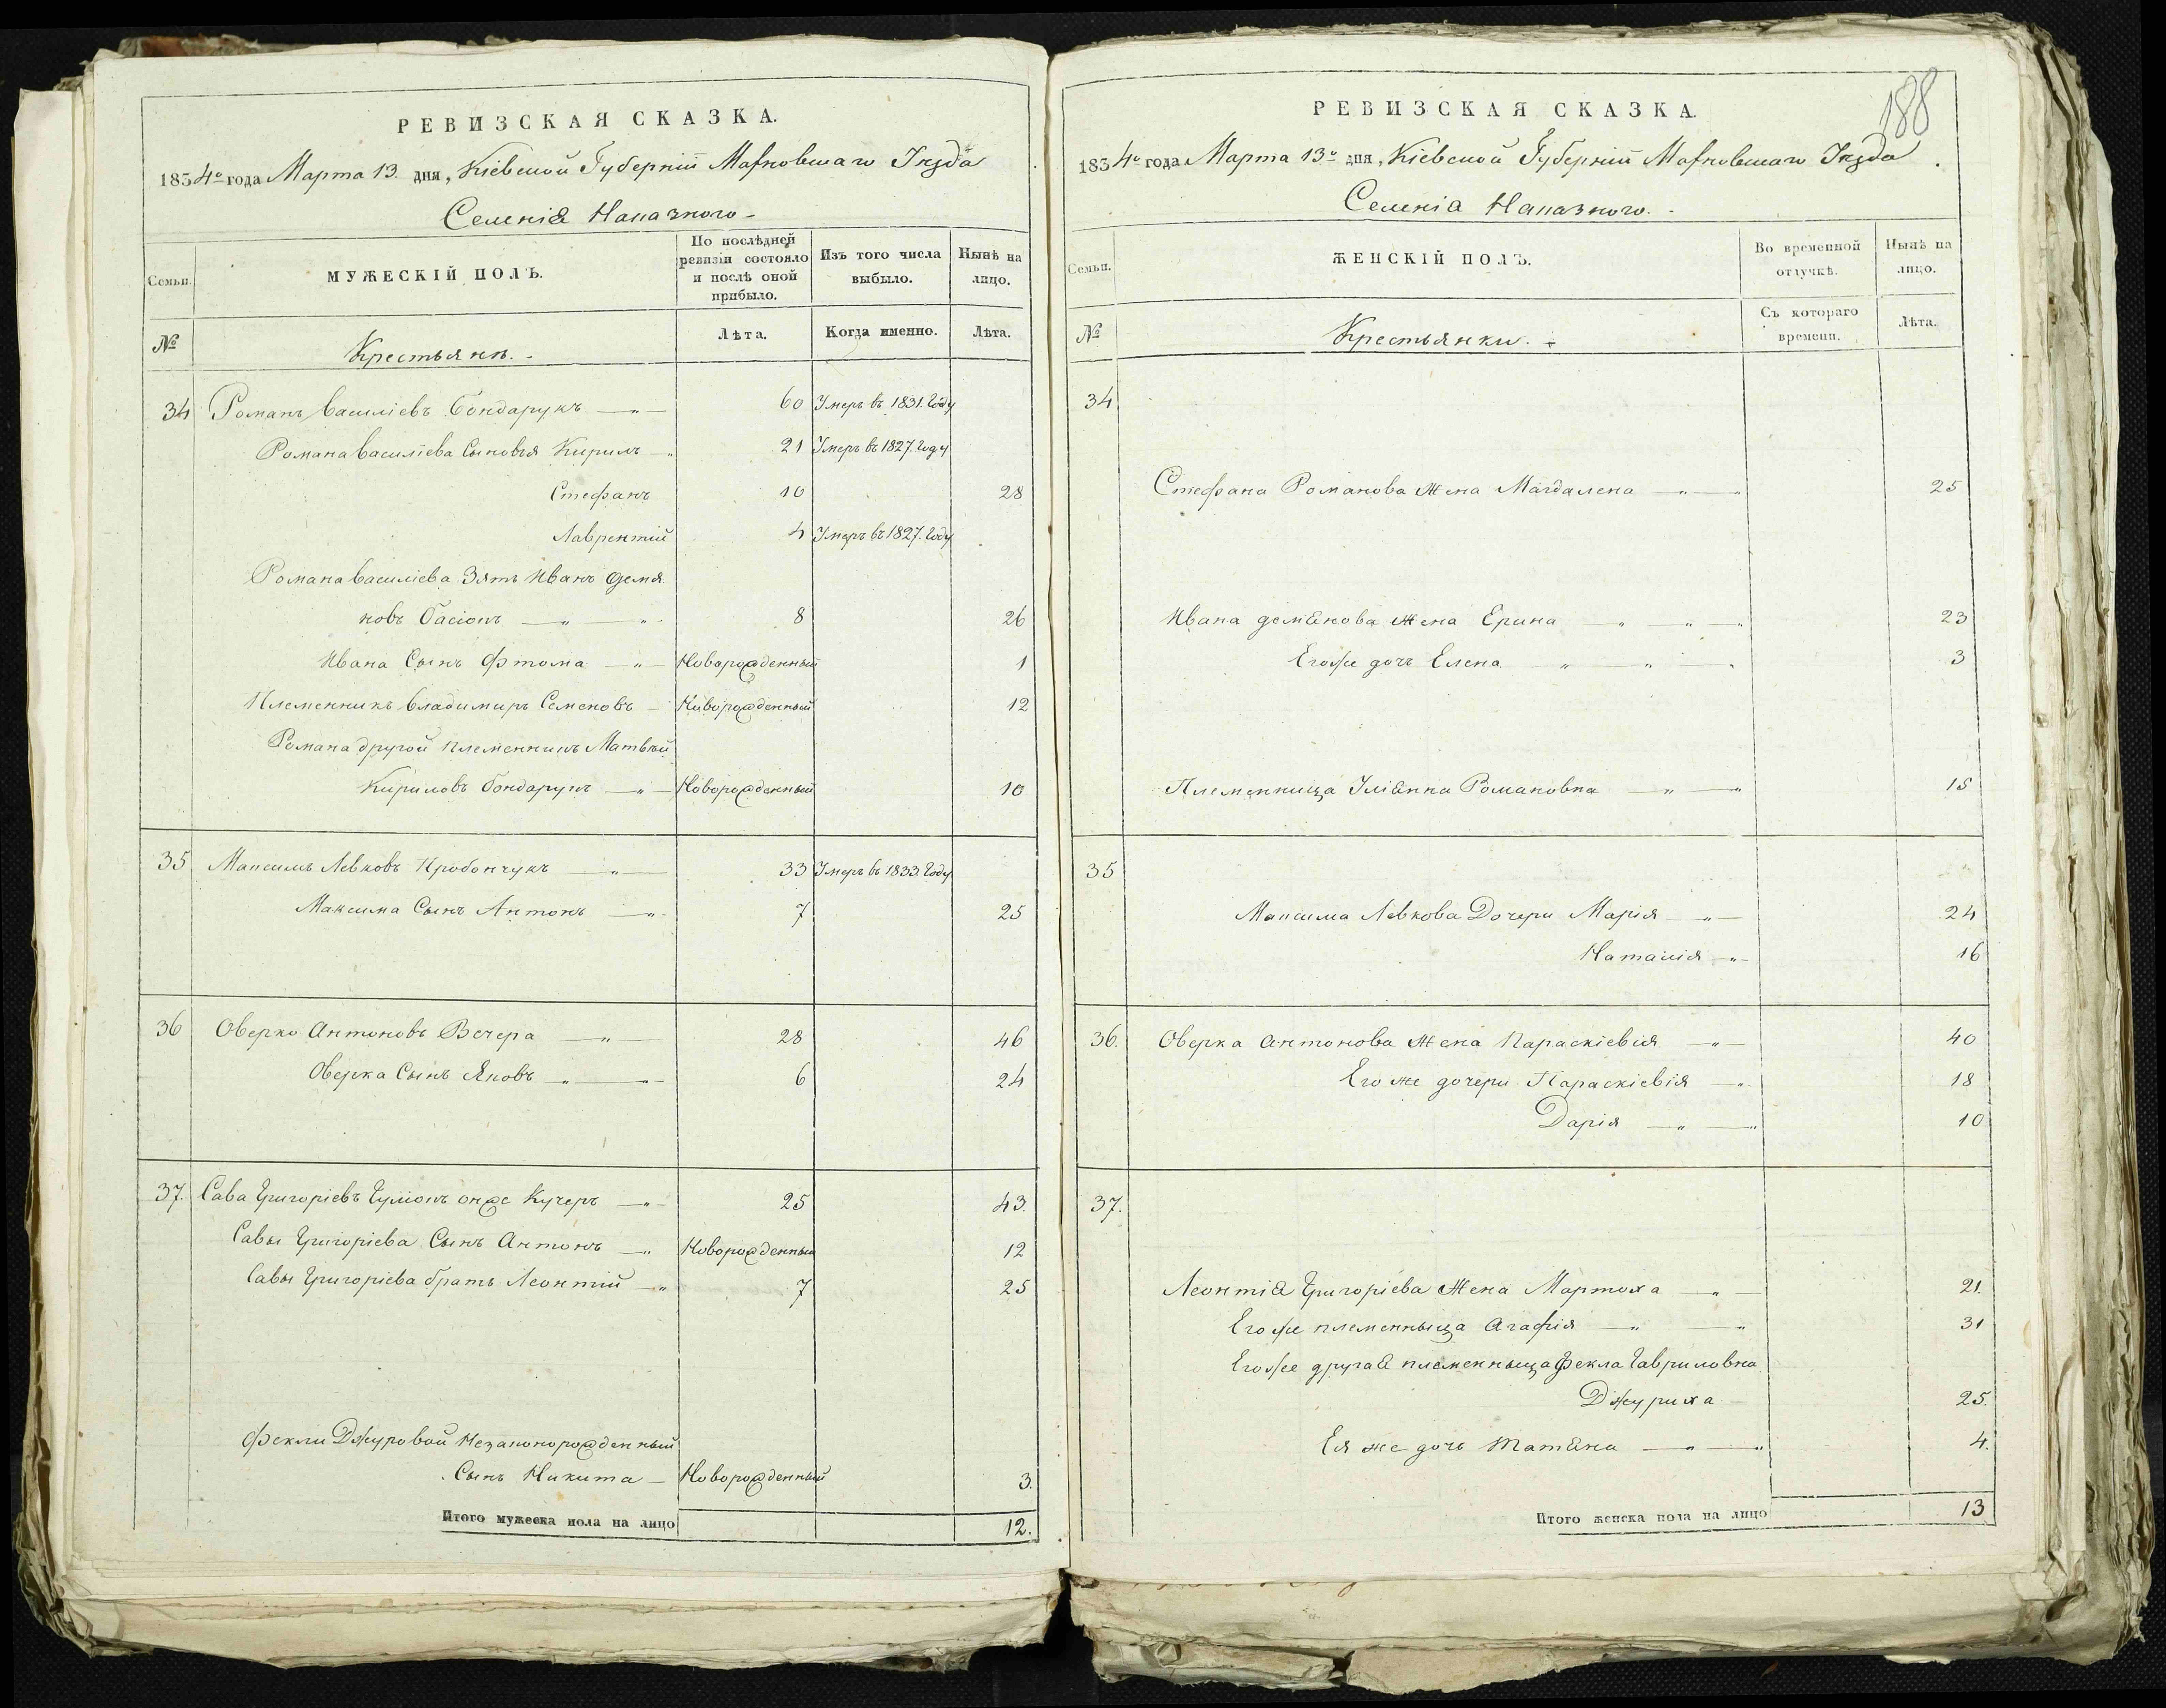 РЕВИЗСКАЯ СКАЗКА.
1834го года Марта 13. дня, Кіевской Губерніи Махновскаго Уѣзда
Селенія
МУЖЕСКІЙ ПОЛЪ.
Семьи.
По послѣдней ревизіи состояло и послѣ оной прибыло.
Изъ того числа выбыло.
Нынѣ на лицо.
№
Крестьянѣ.
Лѣта.
Когда именно.
Лѣта.
34 Романъ Василіевъ Бондарукъ 60 Умеръ въ 1831. Году
Романа Василіева Сыновья Кирилъ 21 Умеръ въ 1827. Году
Стефанъ 10 28
Лаврентій 4 Умеръ въ 1827. Году
Романа Василіева Зять Иванъ Демя
новъ 8 26
Ивана Сынъ Фтома Новорожденный 1
Племенникъ Владимиръ Семеновъ Новорожденный 12
Романа другой племенникъ Матвѣй
Кириловъ Бондарукъ Новорожденный 10
35 Максимъ Левковъ 33 Умеръ въ 1833. Году
Максима Сынъ Антонъ 7 25
36 Оверко Антоновъ Вечера 28 46
Оверка Сынъ Яковъ 6 24
37. Сава Григоріевъ онже Кучеръ 25 43.
Савы Григоріева Сынъ Антонъ Новорожденный 12
Савы Григоріева братъ Леонтій 7 25
Фекли Джуровой Незаконорожденный
Сынъ Никита Новорожденный 3.
Итого мужеска пола на лицо 12.
188
РЕВИЗСКАЯ СКАЗКА.
1834го года Марта 13го дня, Кіевской Губерніи Махновскаго Уѣзда
Селенія
Семьи.
ЖЕНСКІЙ ПОЛЪ.
Во временной отлучкѣ.
Нынѣ на лицо.
№
Крестьянки.
Съ котораго времени.
Лѣта.
34
Стефана Романова Жена Магдалена 25
Ивана демянова жена Ерина 23
Егоже дочъ Елена 3
Племенница Уліянна Романовна 15
35
Максима Левкова Дочери Марія 24
Наталія 16
36. Оверка Антонова Жена Параскіевія 40
Его же дочери Параскіевія 18
Дарія 10
37.
Леонтія Григоріева Жена Мартоха 21.
Егоже племенныца Агафія 31
Егоже другая племенныца Фекла Гавриловна
Джуриха 25.
Ея же дочъ Татяна 4.
Итого женска пола на лицо 13